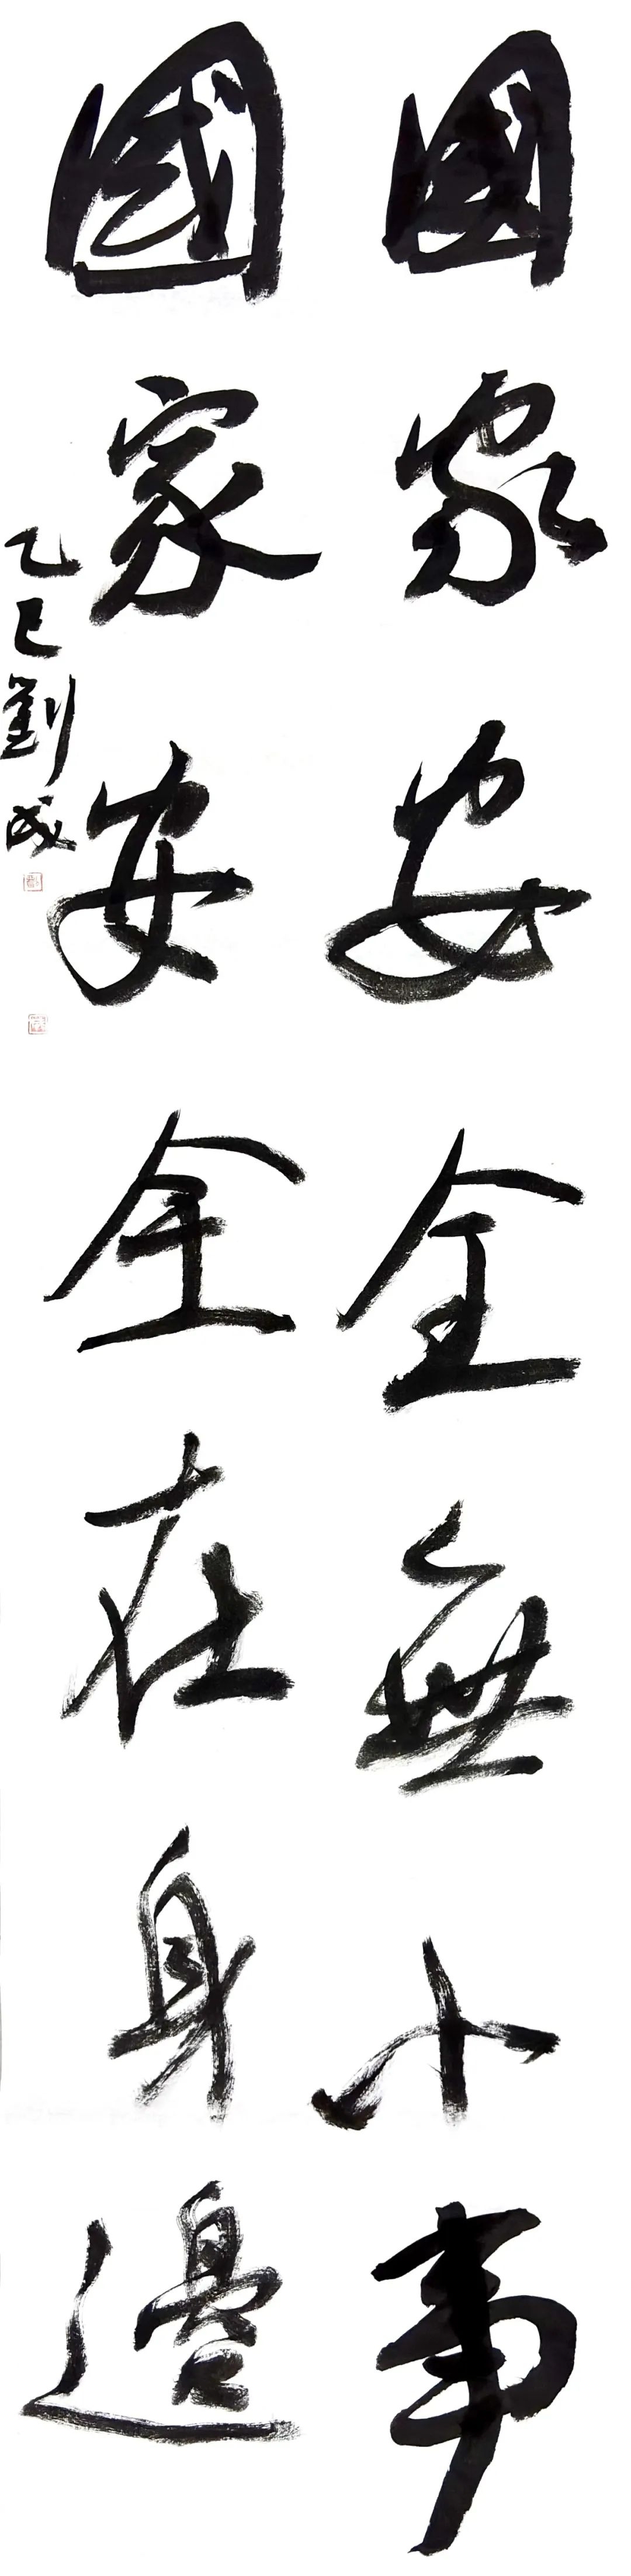 國家安全無小事
國家安全在身邊
乙巳劉成